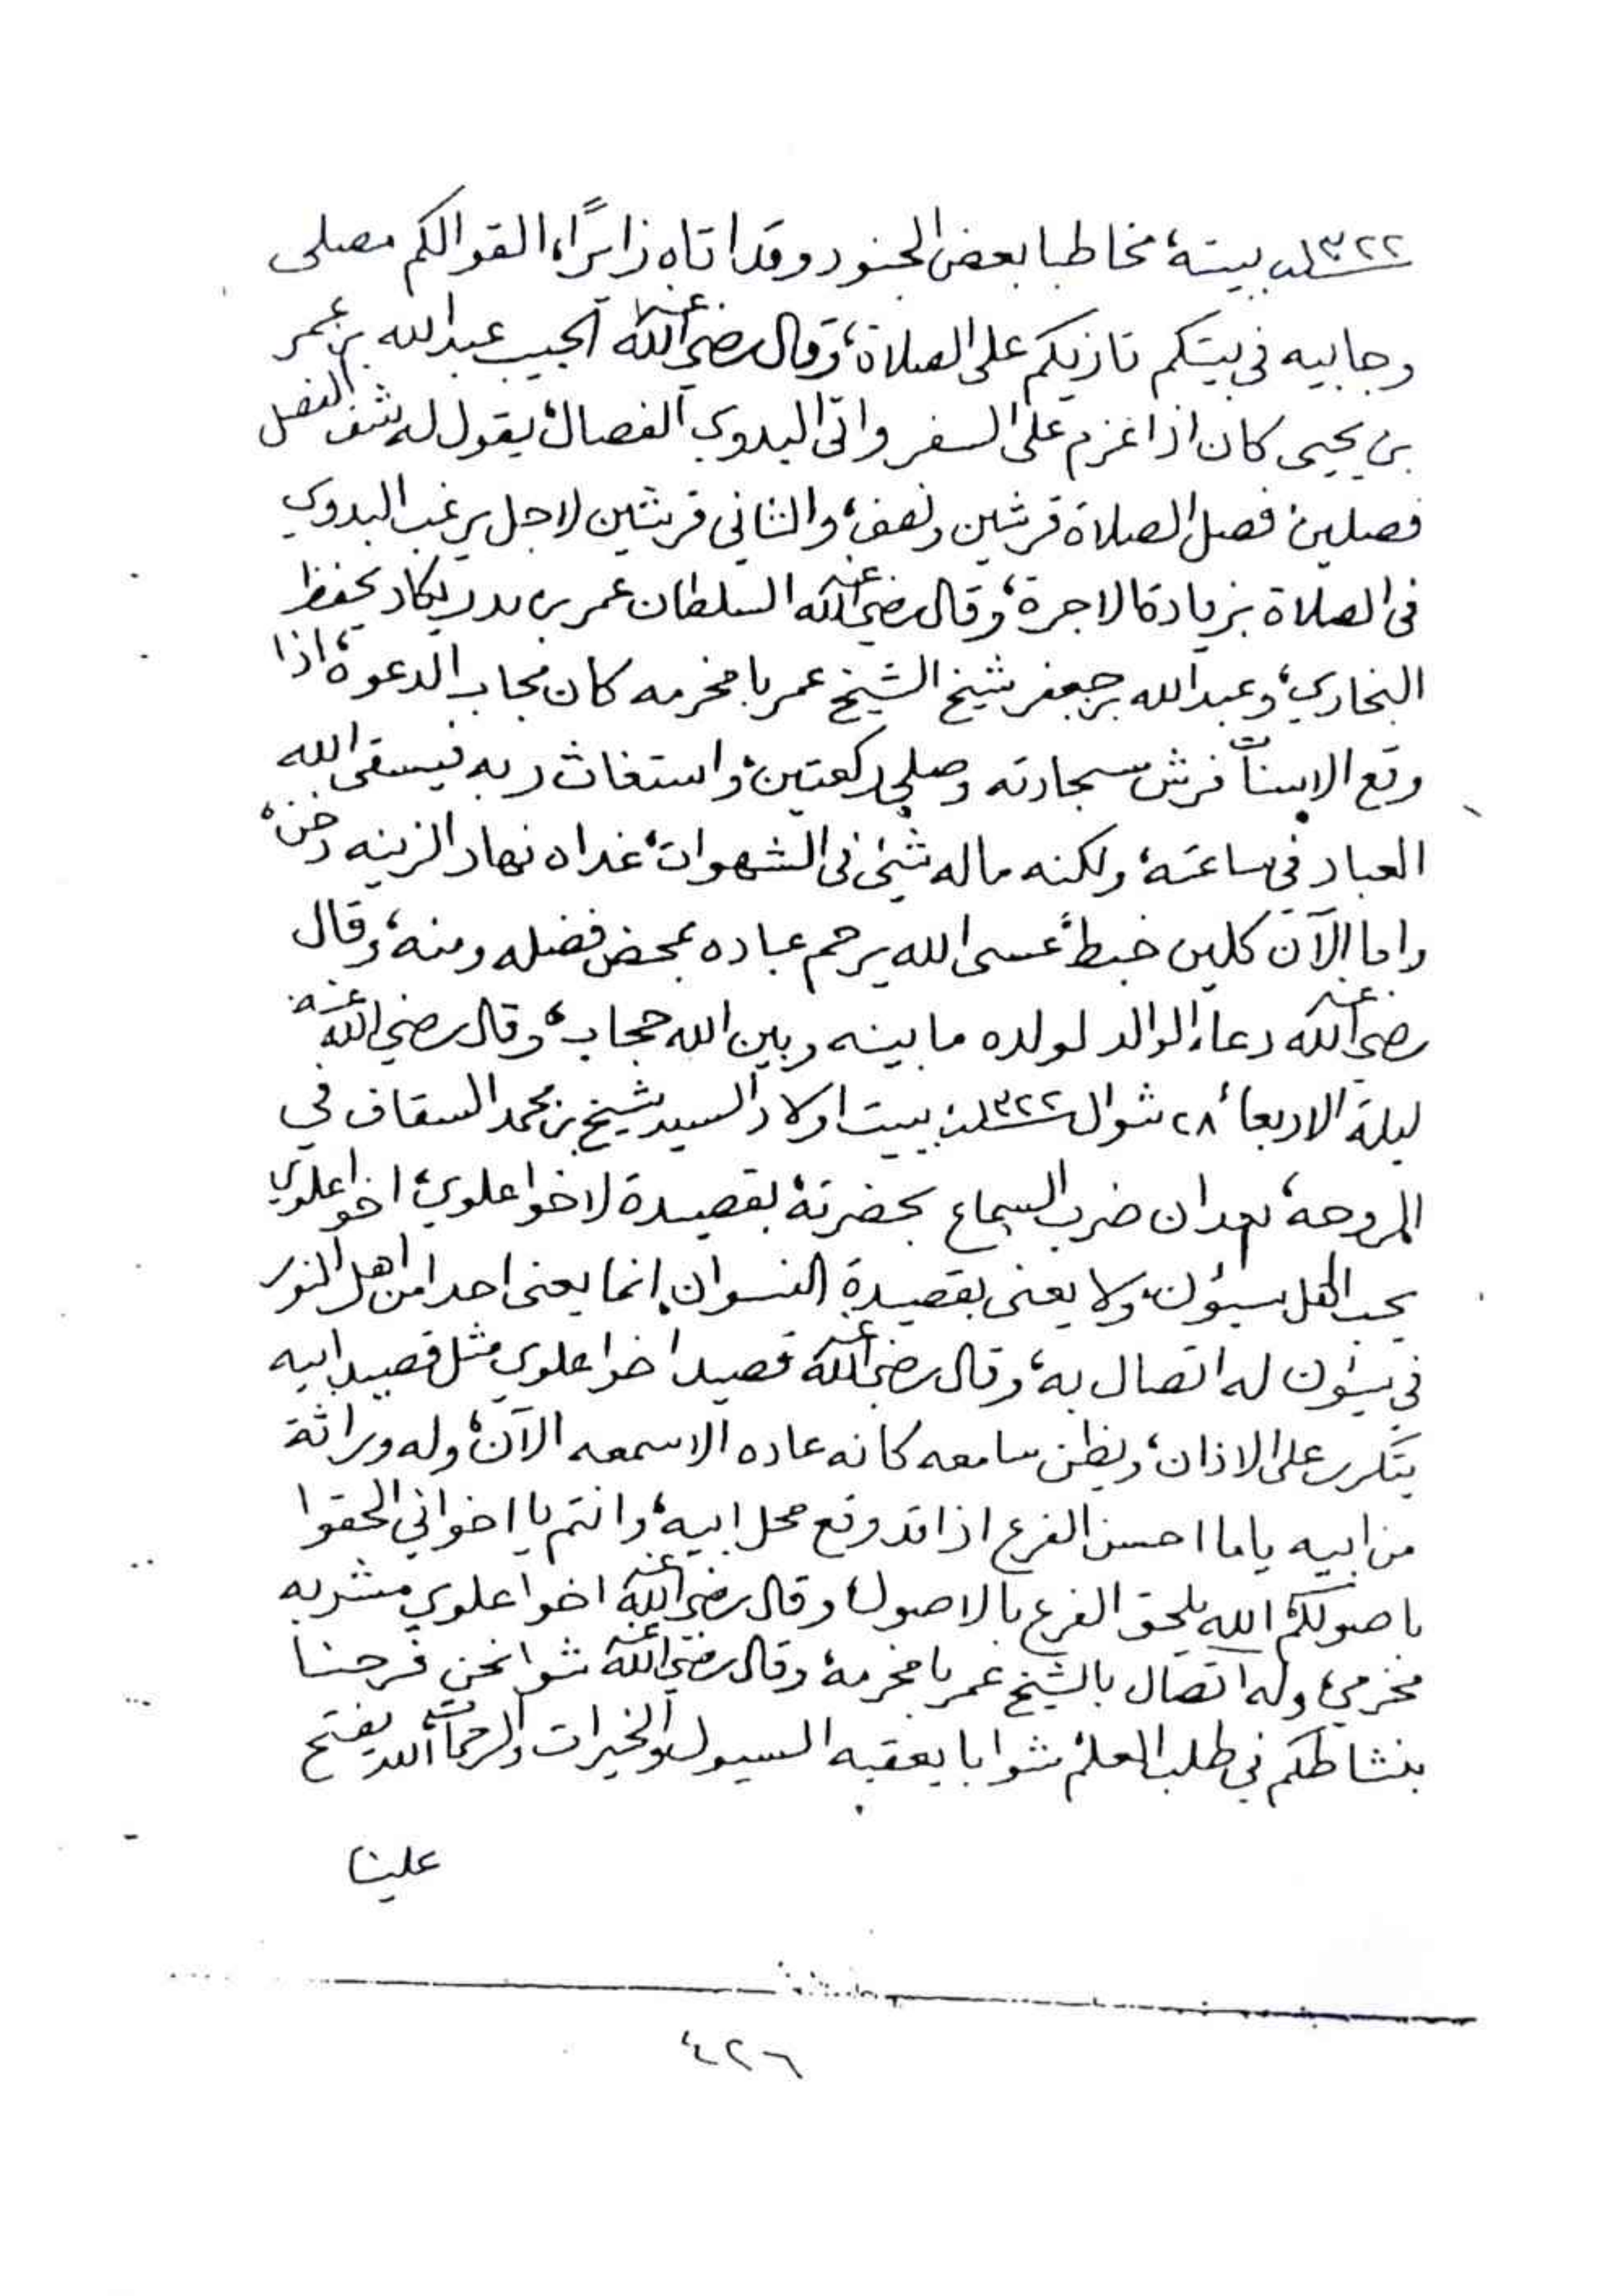 ١٣٢٢ ببيته، مخاطبا بعض الجنود وقد اتاه زايرًا، القوا لكم مصلى
وجابيه في بيتكم تازيكم على الصلاة، وقال رضي الله عنه الحبيب عبد الله بن عمر
بن يحيى كان اذا عزم على السفر واتى البدوي الفصال، يقول له شف الفصل
فصلين، فصل الصلاة قرشين ونصف، والثاني قرشين لاجل يرغب البدوي
في الصلاة بزيادة الاجرة، وقال رضي الله عنه السلطان عمر بن بدر يكاد يحفظ
البخاري، وعبد الله بن جعفر شيخ الشيخ عمر بامخرمه كان مجاب الدعوة، اذا
وقع الاسنات فرش سجادته وصلى ركعتين، واستغاث ربه فيسقي الله
العباد في ساعته، ولكنه ماله شيئ في الشهوات، غداه نهار الزينه
واما الآن كلين خبط، عسى الله يرحم عباده بمحض فضله ومنه، وقال
رضي الله عنه دعاء الوالد لولده ما بينه وبين الله حجاب، وقال رضي الله عنه
ليلة الاربعاء ٢٨ شوال ١٣٢٢ ببيت اولاد السيد شيخ بن محمد السقاف في
المروحه، بعد ان ضرب السماع بحضرته، بقصيدة لاخوا علوي، اخوا علوي
يحب اهل سيؤن، ولا يعني بقصيدة النسوان، انما يعني احدا من اهل النور
في سيؤن له اتصال به، وقال رضي الله عنه قصيد اخوا علوي مثل قصيد ابيه
يتكرر على الاذان، ويظن سامعه كانه عاده الا سمعه الآن، وله وراثة
من ابيه ياما احسن الفرع اذا قد وقع محل ابيه، وانتم يا اخواني الحقوا
باصولكم، الله يلحق الفرع بالاصول، وقال رضي الله عنه اخوا علوي مشربه
مخرمي، وله اتصال بالشيخ عمر بامخرمه، وقال رضي الله عنه شوا نحن فرحنا
بنشاطكم في طلب العلم، شوا با يعقبه السيول والخيرات والرحمات، الله يفتح
علينا
٤٢٦